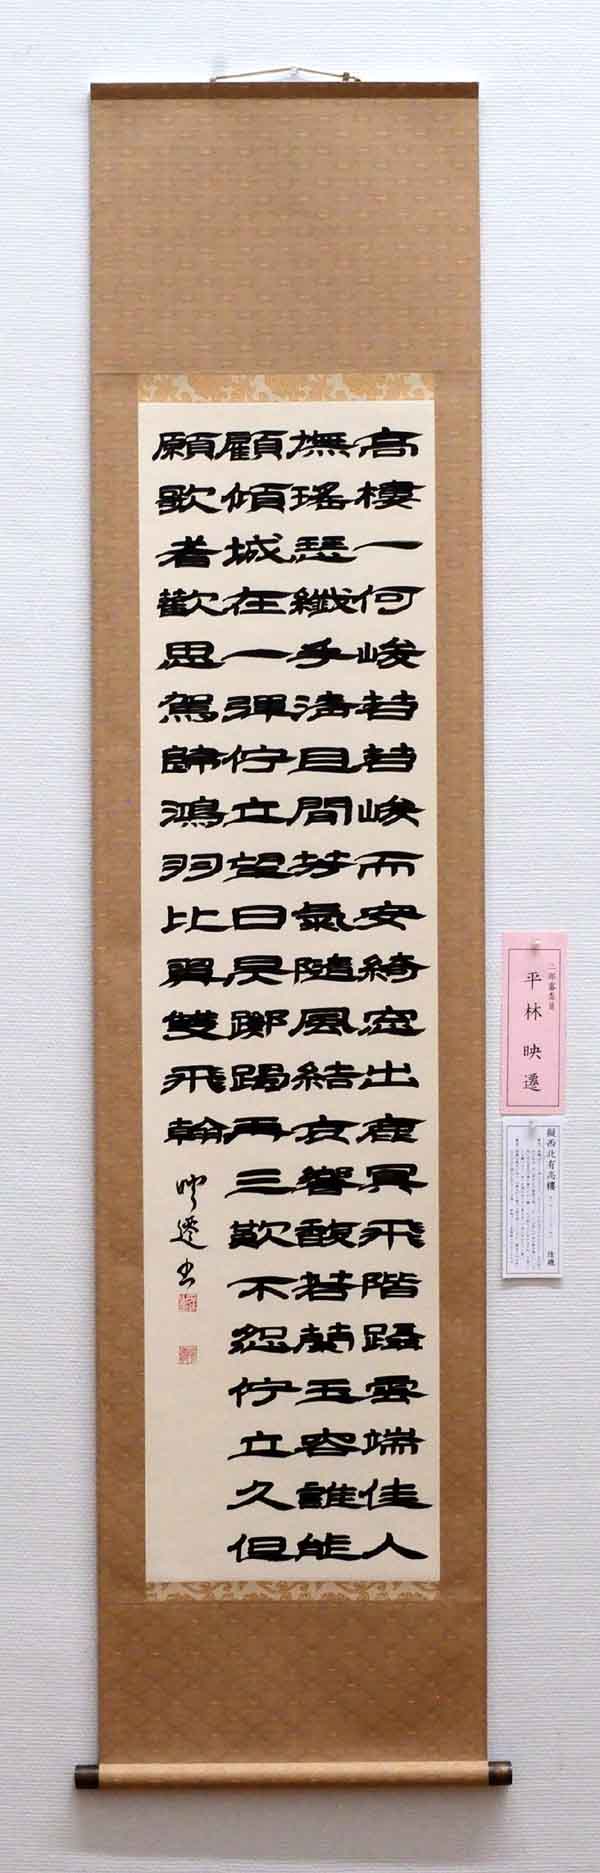 高樓一何峻苕苕峻而安綺窓出塵冥飛階躡雲端佳人
撫瑤瑟纖手清且間芳氣隨風結哀響馥若蘭玉容誰能
顧傾城在一彈佇立望日昃躑躅再三歎不怨佇立久但
願歌者歡思駕歸鴻羽比翼雙飛翰
映遷書
二部審査員
平林 映遷
擬西北有高樓 陸機